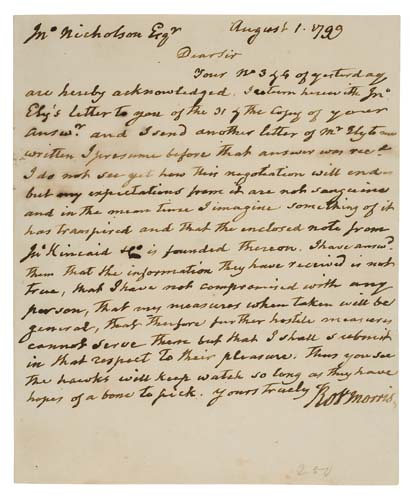 Jnº Nicholson Esqr August 1. 1799
Dear Sir
Your Nº 3 & 4 of yesterday
are hereby acknowledged. I return herewith Jnº
Ely's letter to you of the 31 & the Copy of your
answr. and I send another letter of Mr Ely to me
written I presume before that answer was recd.
I do not see yet how this negotiation will end
but my expectations from it are not sanguine
and in the mean time I imagine something of it
has transpired and that the enclosed note from
Kincaid &Co is founded thereon. I have answd.
them that the information they have received is not
true, that I have not compromised with any
person, that my measures when taken will be
general, that therefore further hostile measures
cannot serve them but that I shall submit
in that respect to their pleasure. Thus you see
the hawks will keep watch so long as they have
hopes of a bone to pick. Yours truely Robt Morris
250